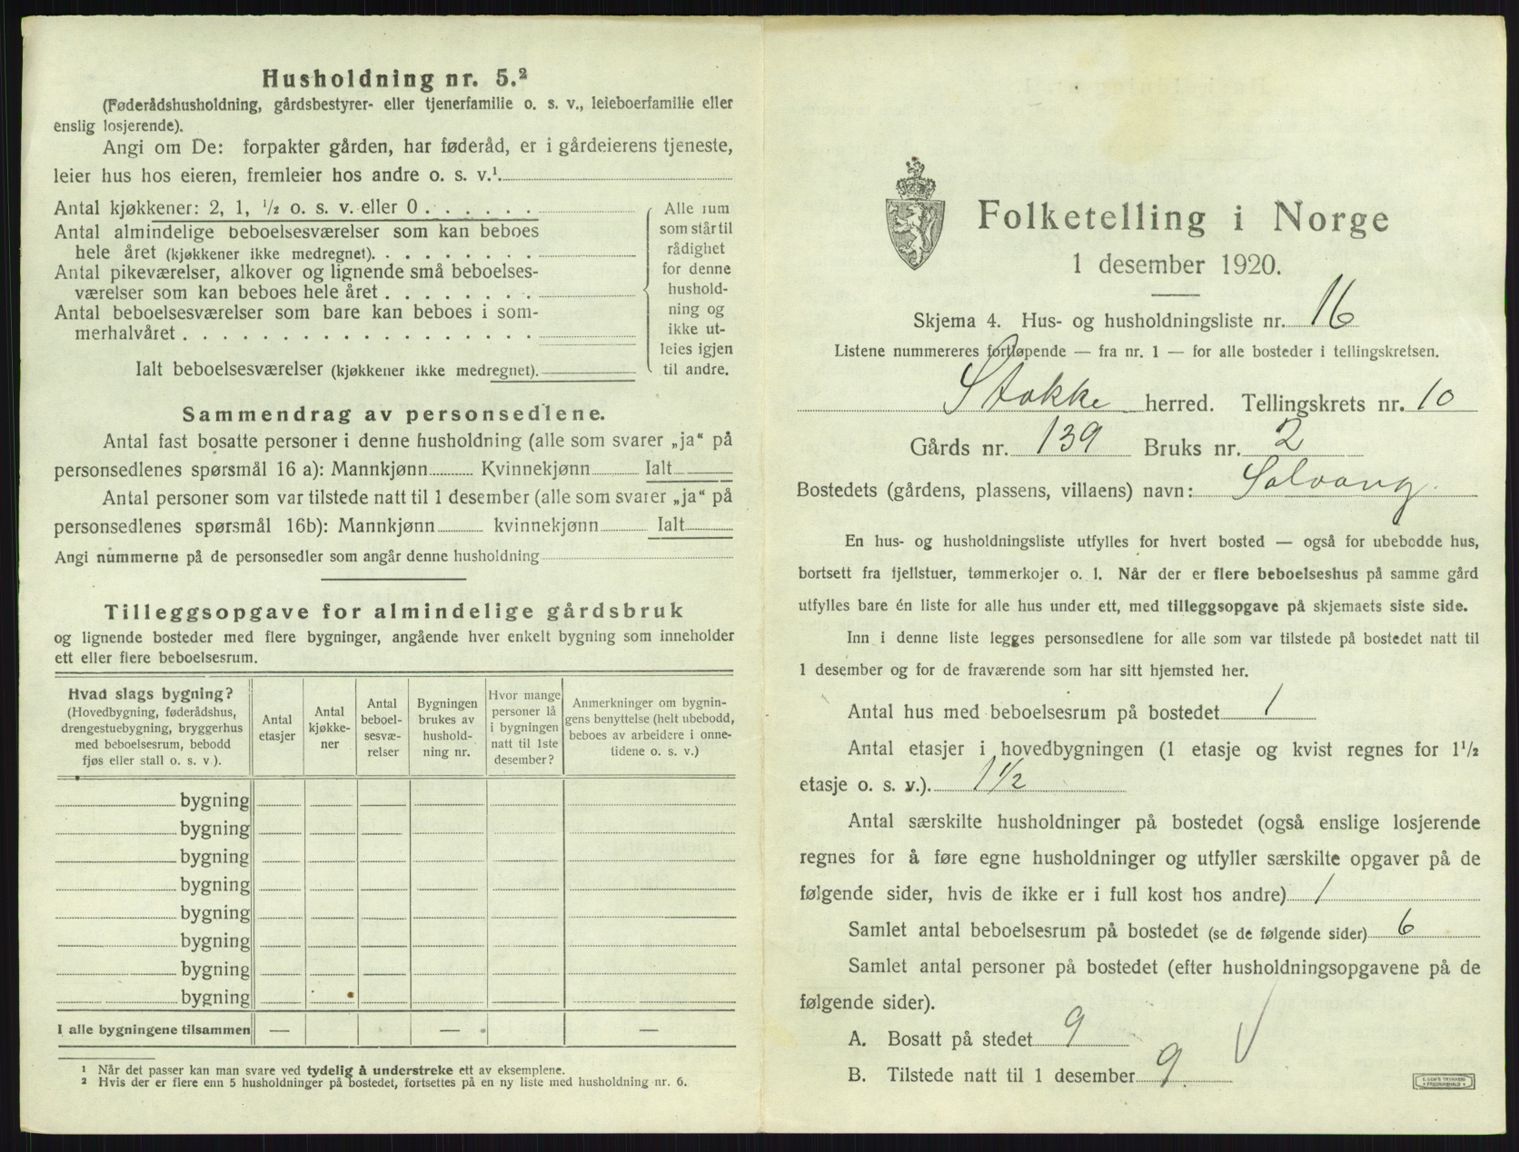 Husholdning nr. 5.²
(Føderådshusholdning, gårdsbestyrer- eller tjenerfamilie o. s. v., leieboerfamilie eller
enslig losjerende).
Angi om De: forpakter gården, har føderåd, er i gårdeierens tjeneste,
leier hus hos eieren, fremleier hos andre o. s. v.¹
Antal kjøkkener: 2, 1, ¹/₂ o. s. v. eller 0 . . . . . .
Antal almindelige beboelsesværelser som kan beboes
hele året (kjøkkener ikke medregnet). . . . . . . . .
Antal pikeværelser, alkover og lignende små beboelses-
værelser som kan beboes hele året . . . . . . . .
Antal beboelsesværelser som bare kan beboes i som-
merhalvåret . . . . . . . . . . . . . . . . . .
Ialt beboelsesværelser (kjøkkener ikke medregnet).
Alle rum
som står til
rådighet
for denne
hushold-
ning og
ikke ut-
leies igjen
til andre.
Sammendrag av personsedlene.
Antal fast bosatte personer i denne husholdning (alle som svarer „ja“ på
personsedlenes spørsmål 16 a): Mannkjønn Kvinnekjønn Ialt
Antal personer som var tilstede natt til 1 desember (alle som svarer „ja“ på
personsedlenes spørsmål 16b): Mannkjønn kvinnekjønn Ialt
Angi nummerne på de personsedler som angår denne husholdning
Tilleggsopgave for almindelige gårdsbruk
og lignende bosteder med flere bygninger, angående hver enkelt bygning som inneholder
ett eller flere beboelsesrum.
Hvad slags bygning?
(Hovedbygning, føderådshus,
drengestuebygning, bryggerhus
med beboelsesrum, bebodd
fjøs eller stall o. s. v.).
Antal
etasjer
Antal
kjøkke-
ner
Antal
beboel-
sesvæ-
relser
Bygningen
brukes av
hushold-
ning nr.
Hvor mange
personer lå
i bygningen
natt til 1ste
desember?
Anmerkninger om bygnin-
gens benyttelse (helt ubebodd,
beboes av arbeidere i onne-
tidene o. s. v.)
bygning
bygning
bygning
bygning
bygning
bygning
bygning
bygning
I alle bygningene tilsammen — — —
¹ Når det passer kan man svare ved tydelig å understreke ett av eksemplene.
² Hvis der er flere enn 5 husholdninger på bostedet, fortsettes på en ny liste med husholdning nr. 6.
Folketelling i Norge
1 desember 1920.
Skjema 4. Hus- og husholdningsliste nr. 16
Listene nummereres fortløpende — fra nr. 1 — for alle bosteder i tellingskretsen.
Stokke herred. Tellingskrets nr. 10
Gårds nr. 139 Bruks nr. 2
Bostedets (gårdens, plassens, villaens) navn: Solvang.
En hus- og husholdningsliste utfylles for hvert bosted — også for ubebodde hus,
bortsett fra fjellstuer, tømmerkojer o. l. Når der er flere beboelseshus på samme gård
utfylles bare én liste for alle hus under ett, med tilleggsopgave på skjemaets siste side.
Inn i denne liste legges personsedlene for alle som var tilstede på bostedet natt til
1 desember og for de fraværende som har sitt hjemsted her.
Antal hus med beboelsesrum på bostedet 1
Antal etasjer i hovedbygningen (1 etasje og kvist regnes for 1¹/₂
etasje o. s. v.). 1 1/2
Antal særskilte husholdninger på bostedet (også enslige losjerende
regnes for å føre egne husholdninger og utfyller særskilte opgaver på de
følgende sider, hvis de ikke er i full kost hos andre) 1
Samlet antal beboelsesrum på bostedet (se de følgende sider) 6
Samlet antal personer på bostedet (efter husholdningsopgavene på de
følgende sider).
A. Bosatt på stedet 9
B. Tilstede natt til 1 desember 9.